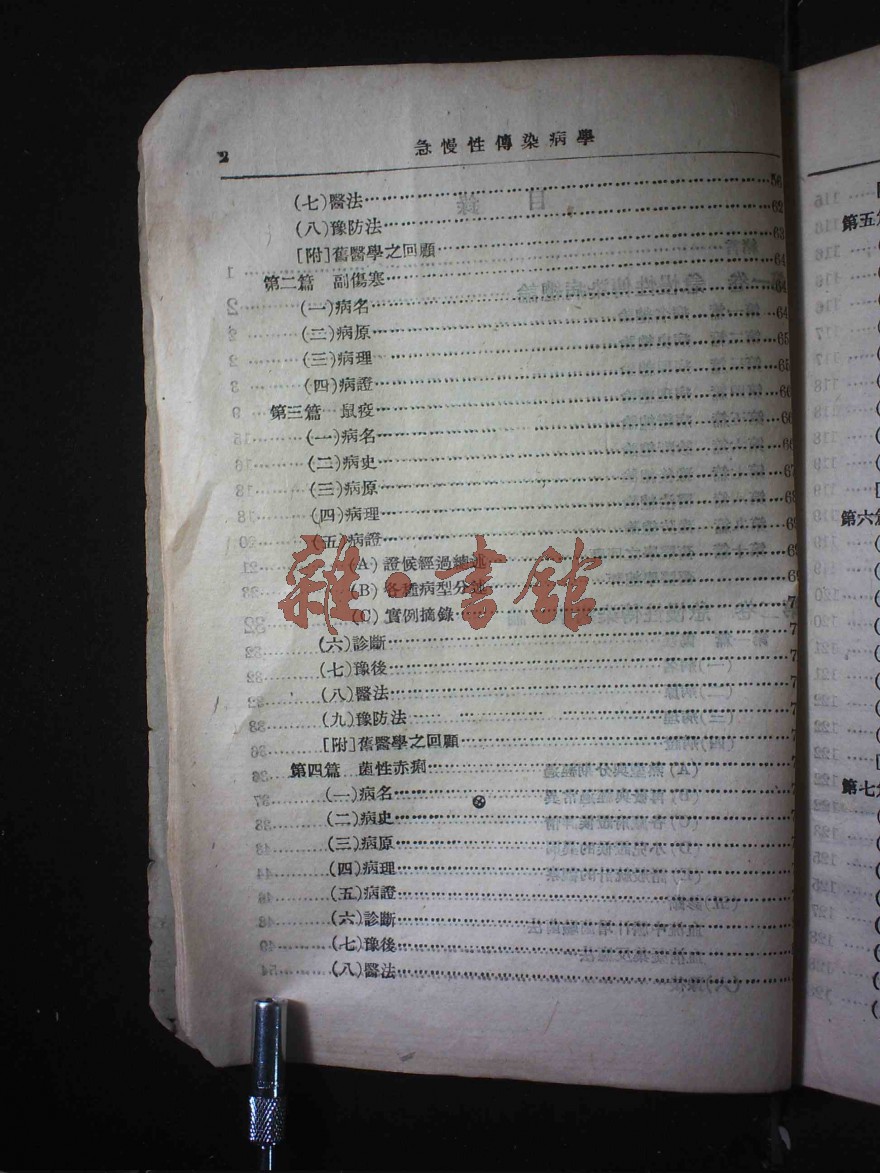 2
急慢性傳染病學
(七)醫法………56
(八)豫防法………62
[附]舊醫學之回顧………63
第二篇 副傷寒………64
(一)病名………64
(二)病原………64
(三)病理………65
(四)病證………65
第三篇 鼠疫………66
(一)病名………66
(二)病史………66
(三)病原………67
(四)病理………68
(五)病證………
(A) 證候經過總述………
(B) 各種病型分述………
(C) 實例摘錄………7
(六)診斷………7
(七)豫後………7
(八)醫法………7
(九)豫防法………7
[附]舊醫學之回顧………7
第四篇 菌性赤痢………7
(一)病名………7
(二)病史………7
(三)病原………7
(四)病理………7
(五)病證………
(六)診斷………
(七)豫後………
(八)醫法………
雜·書館
第五
第六篇
第七